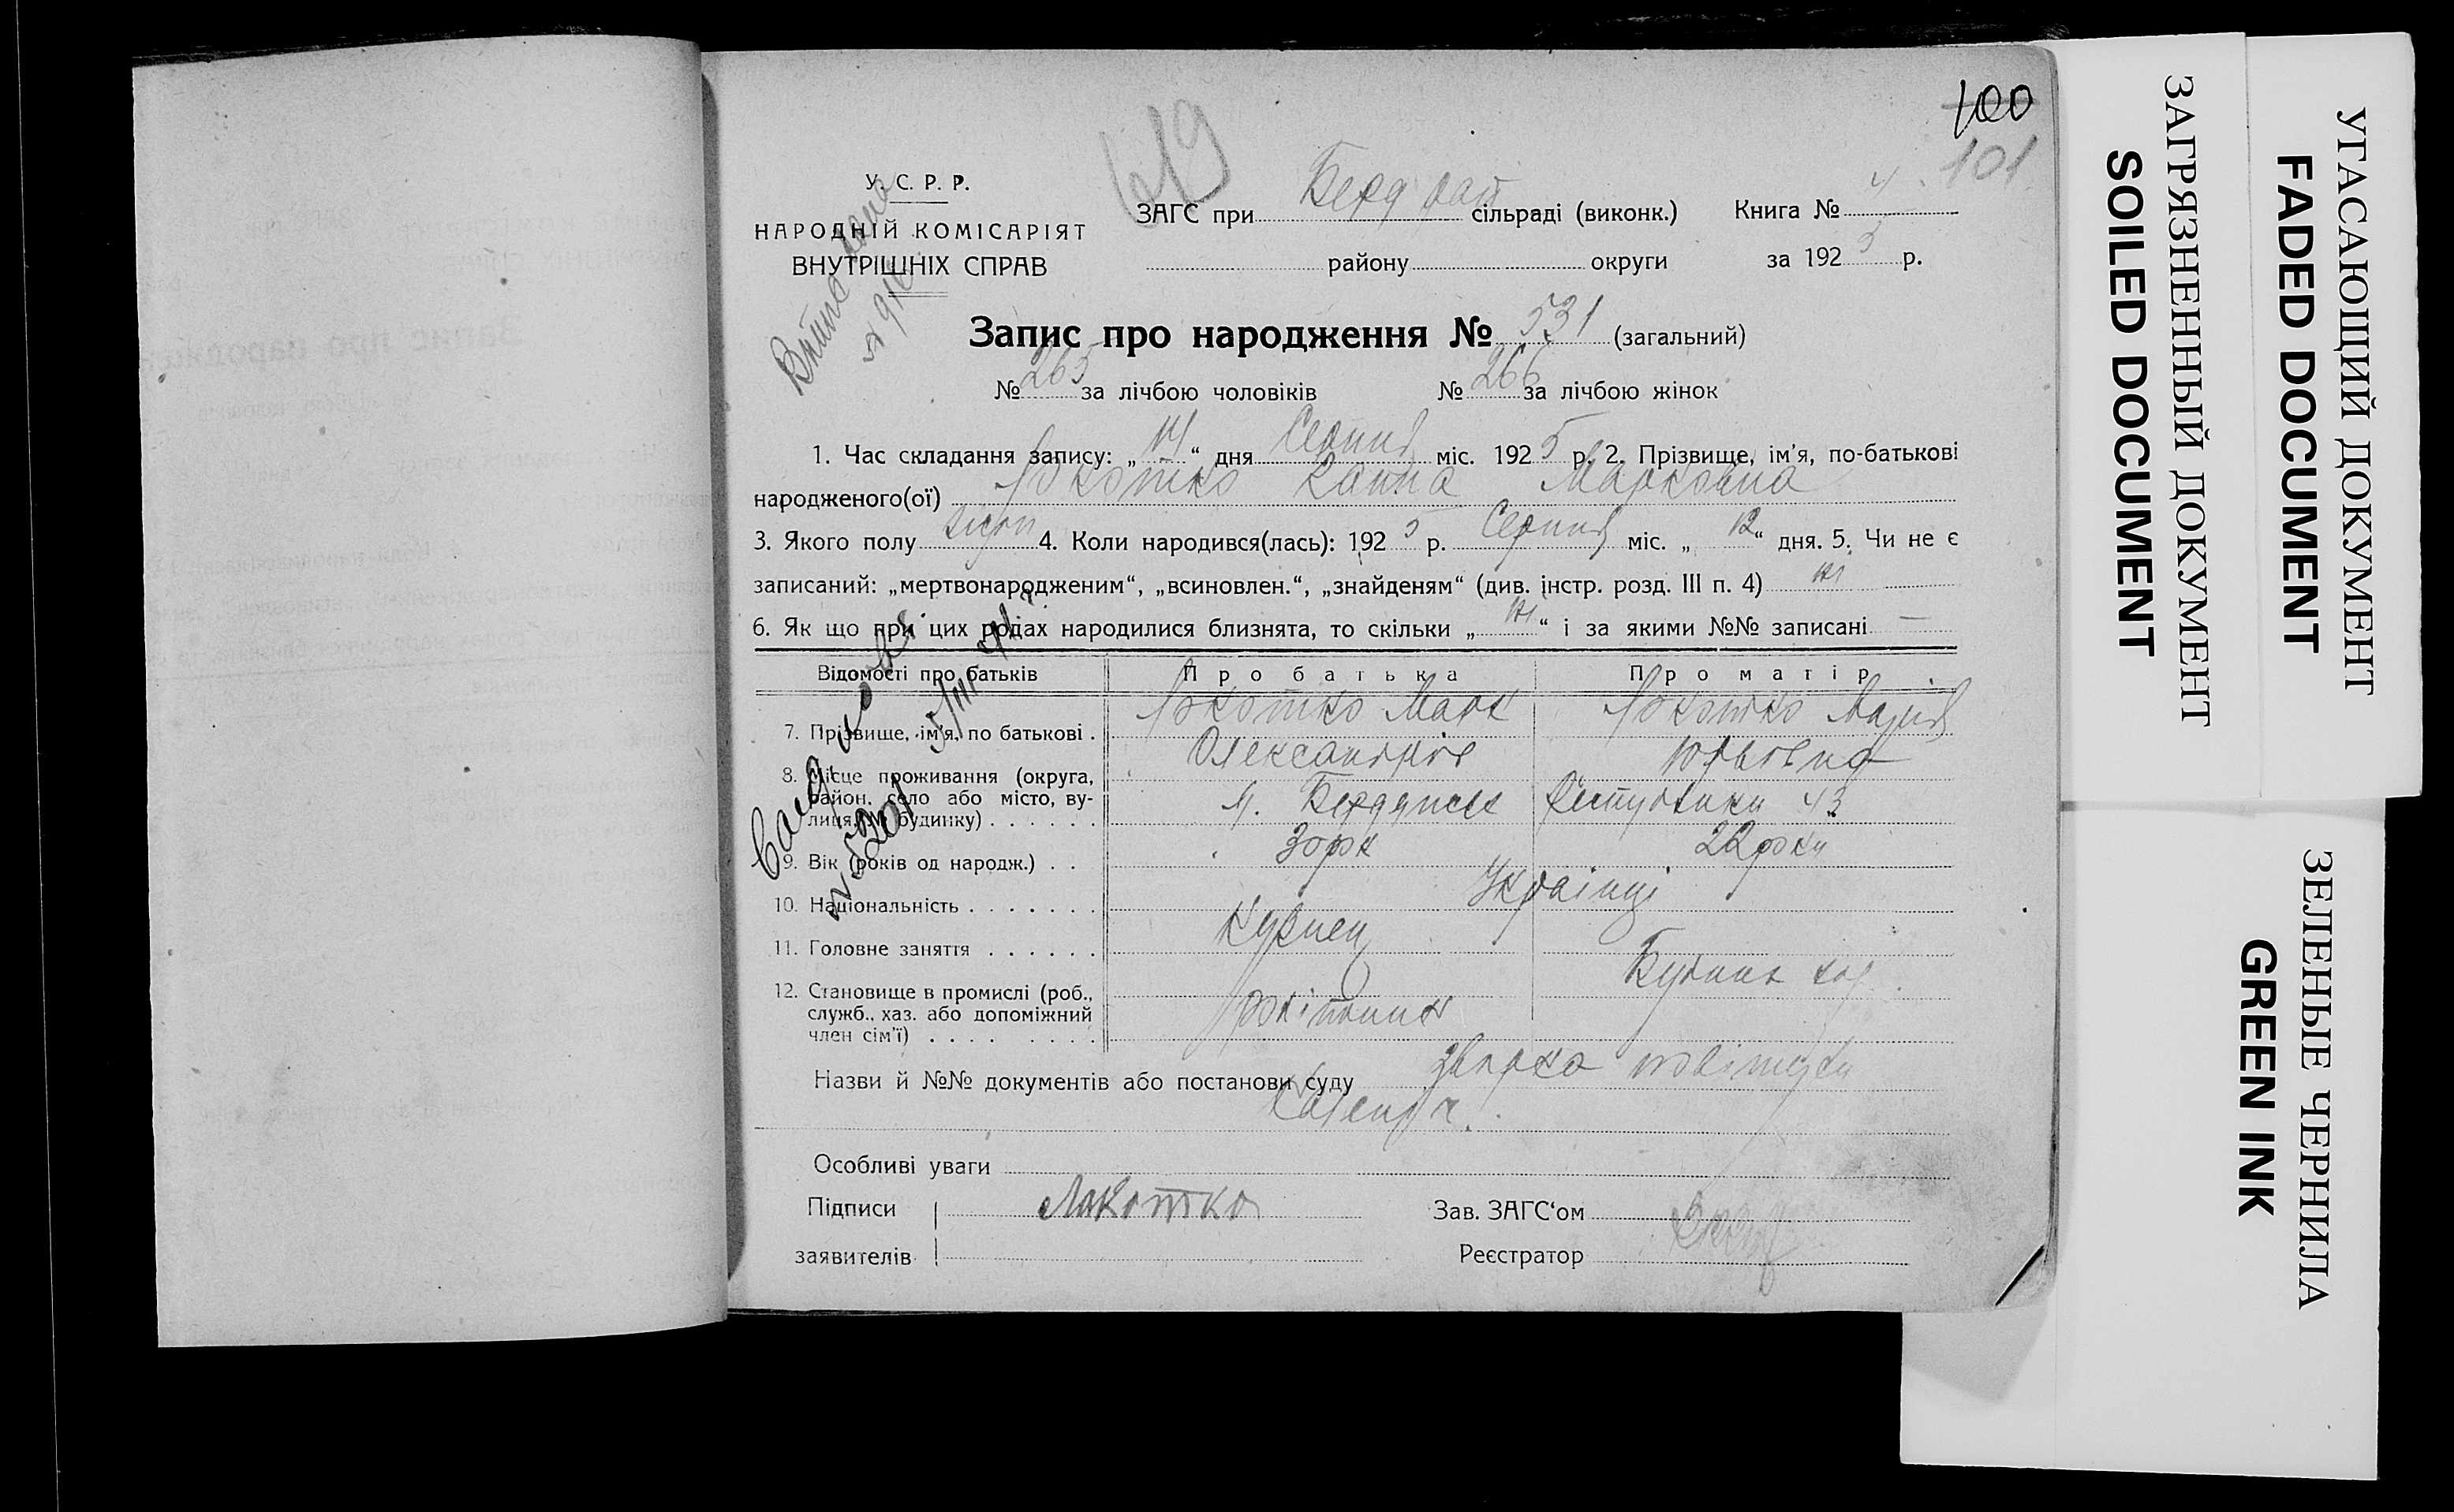 100
101
У. С. Р. Р.
НАРОДНІЙ КОМІСАРІЯТ
ВНУТРІШНІХ СПРАВ
ЗАГС при Берд сільраді (виконк.) Книга № 4
району округи за 1925 р.
Запис про народження № 531 (загальний)
№ 265 за лічбою чоловіків № 266 за лічбою жінок
1. Час складання запису: „14“ дня Серпня міс. 1925 р. 2. Прізвище, ім’я, по-батькові
народженого(ої) Локотко Ганна Марковна
3. Якого полу 4. Коли народився(лась): 1925 р. Серпня міс. „12“ дня. 5. Чи не є
записаний: „мертвонародженим“, „всиновлен.“, „знайденям“ (див. інстр. розд. III п. 4) ні
6. Як що при цих родах народилися близнята, то скільки „ні“ і за якими №№ записані —
Відомості про батьків Про батька Про матір
7. Прізвище, ім’я, по батькові . Локотко Марк Локотко Марія
Олександрів Юрьевна
8. Місце проживання (округа,
район, село або місто, ву-
лиця, № будинку) . . . . . . м. Бердянськ Республики 43
9. Вік (років од народж.) . . 30рок 22роки
10. Національність . . . . . . . Українці
11. Головне заняття . . . . . . Кузнец
12. Становище в промислі (роб.,
служб., хаз. або допоміжний
член сім’ї) . . . . . . . . робітник
Назви й №№ документів або постанови суду
Особливі уваги
Підписи Локотко Зав. ЗАГС‘ом
заявителів Реєстратор
№ 5201
ЗАГРЯЗНЕННЫЙ ДОКУМЕНТ
SOILED DOCUMENT
УГАСАЮЩИЙ ДОКУМЕНТ
FADED DOCUMENT
ЗЕЛЕНЫЕ ЧЕРНИЛА
GREEN INK